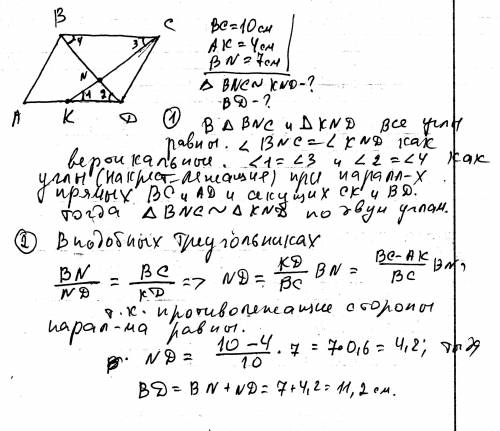 B
C
4
3
N
1
2
A
K
D
BC = 10 см
AK = 4 см
BN = 7 см
△ BNC ~ KND - ?
BD - ?
① В △ BNC и △ KND все углы
равны. ∠ BNC = ∠ KND как
вертикальные. ∠1 = ∠3 и ∠2 = ∠4 как
углы (накрест-лежащие) при паралл-х
прямых BC и AD и секущих CK и BD.
Тогда △ BNC ~ △ KND по двум углам.
② В подобных треугольниках
BN/ND = BC/KD => ND = KD/BC BN = BC-AK/BC BN,
т.к. противолежащие стороны
парал-ма равны.
ND = 10-4/10 · 7 = 7·0,6 = 4,2;
BD = BN + ND = 7 + 4,2 = 11,2 см.